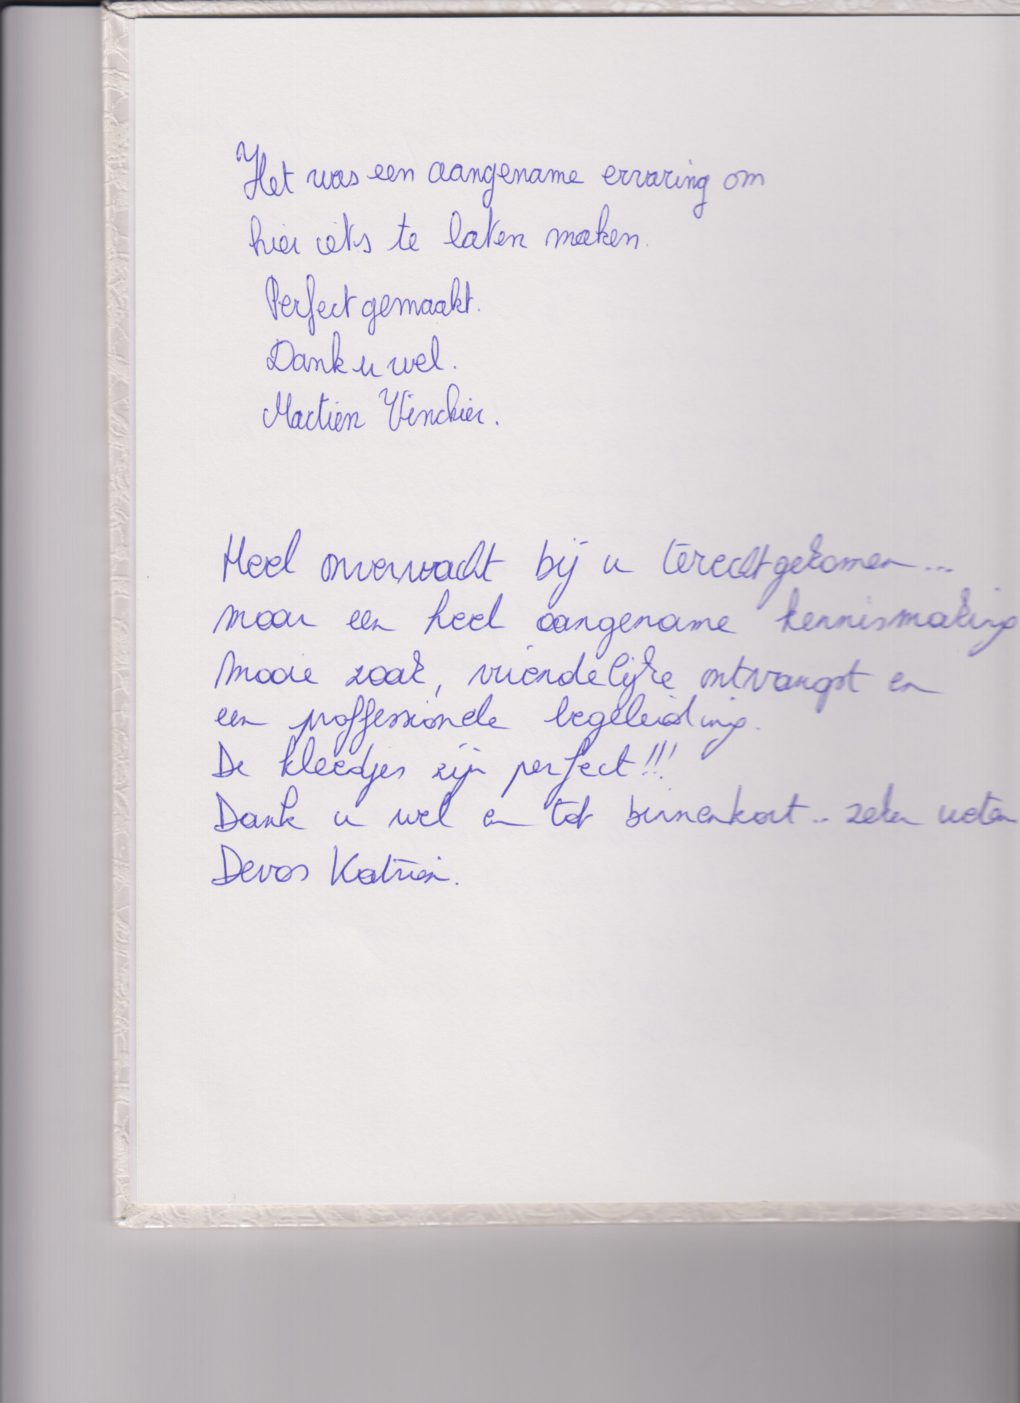 Het was een aangename ervaring om
hier iets te laten maken.
Perfect gemaakt.
Dank u wel.
Martien Vinckier.
Heel onverwacht bij u terechtgekomen...
maar een heel aangename kennismaking
Mooie zaak, vriendelijke ontvangst en
een proffessionele begeleiding.
De kleedjes zijn perfect!!!
Dank u wel en tot binnenkort.. zeker weten
Devos Katrien.